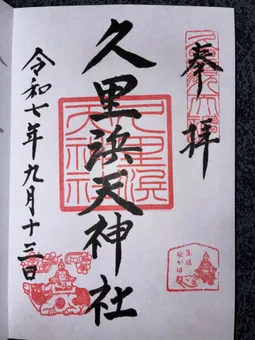 奉拝
久里浜天神社
令和七年九月十三日